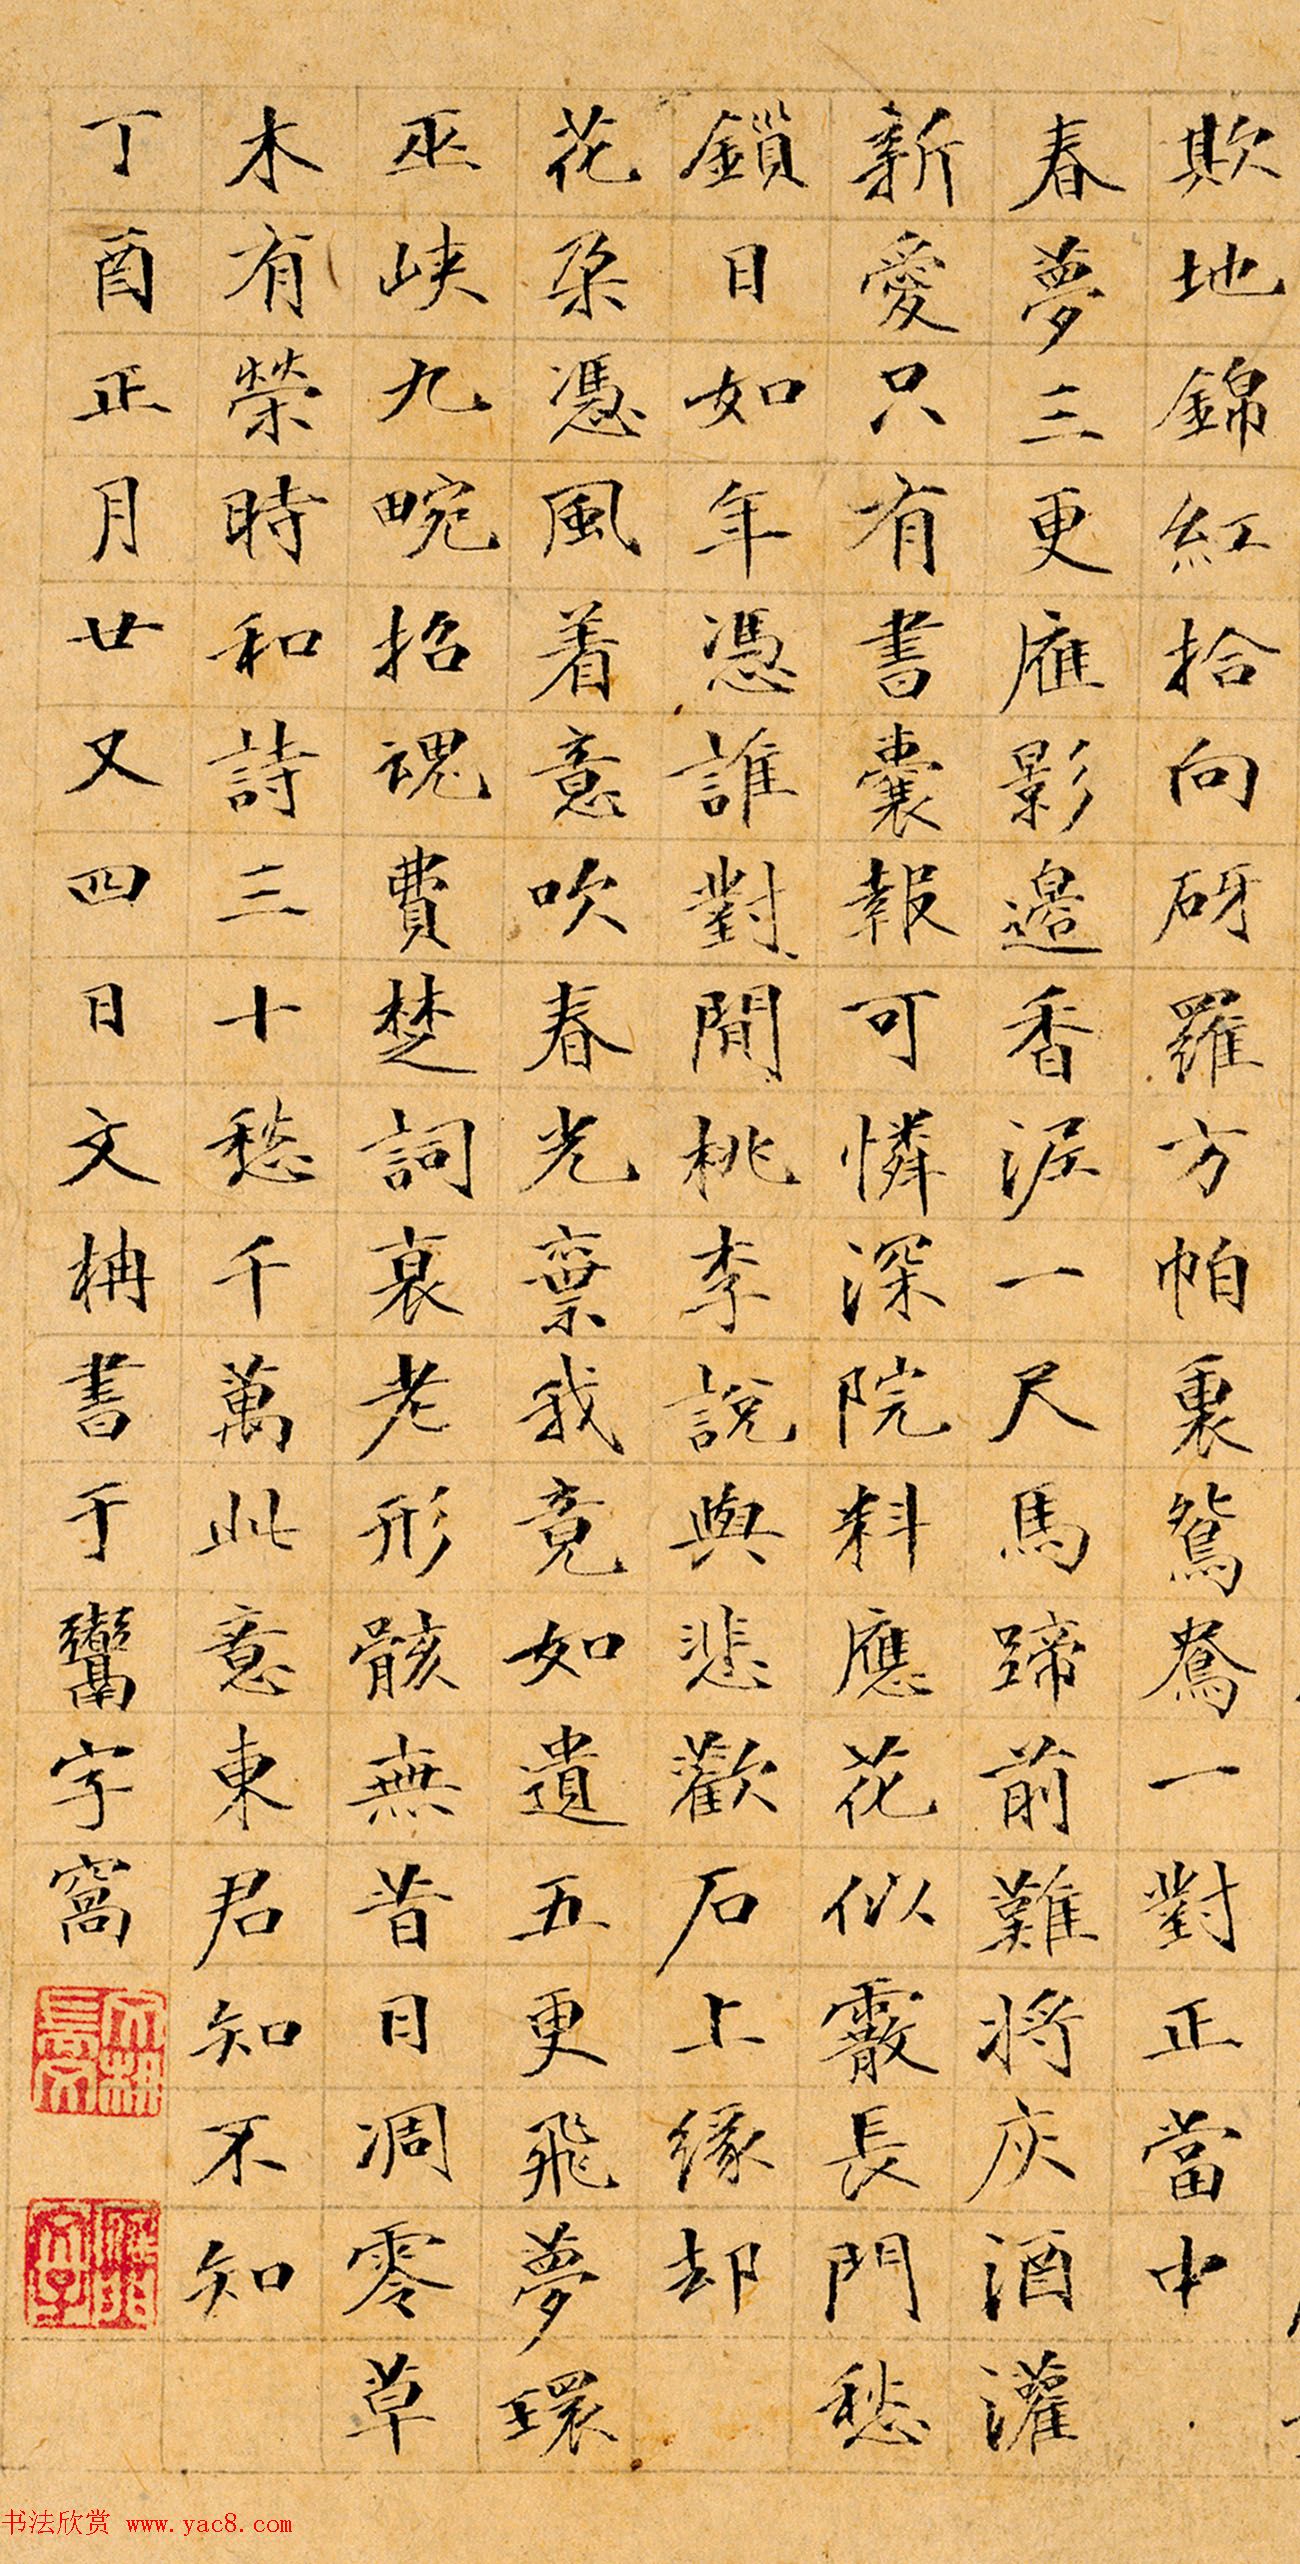 欺地錦紅拾向砑羅方帕裹鴛鴦一對正當中
春夢三更雁影邉香泥一尺馬蹄前難將灰酒灌
新愛只有書囊報可憐深院料應花似霰長門愁
鎖日如年憑誰對閒桃李說與悲歡石上緣却
花朶憑風着意吹春光棄我竟如遺五更飛夢環
巫峽九畹招魂費楚詞衰老形骸無昔日凋零草
木有榮時和詩三十愁千萬此意東君知不知
丁酉正月廿又四日文柟書于鬻字窩
书法欣赏 www.yac8.com